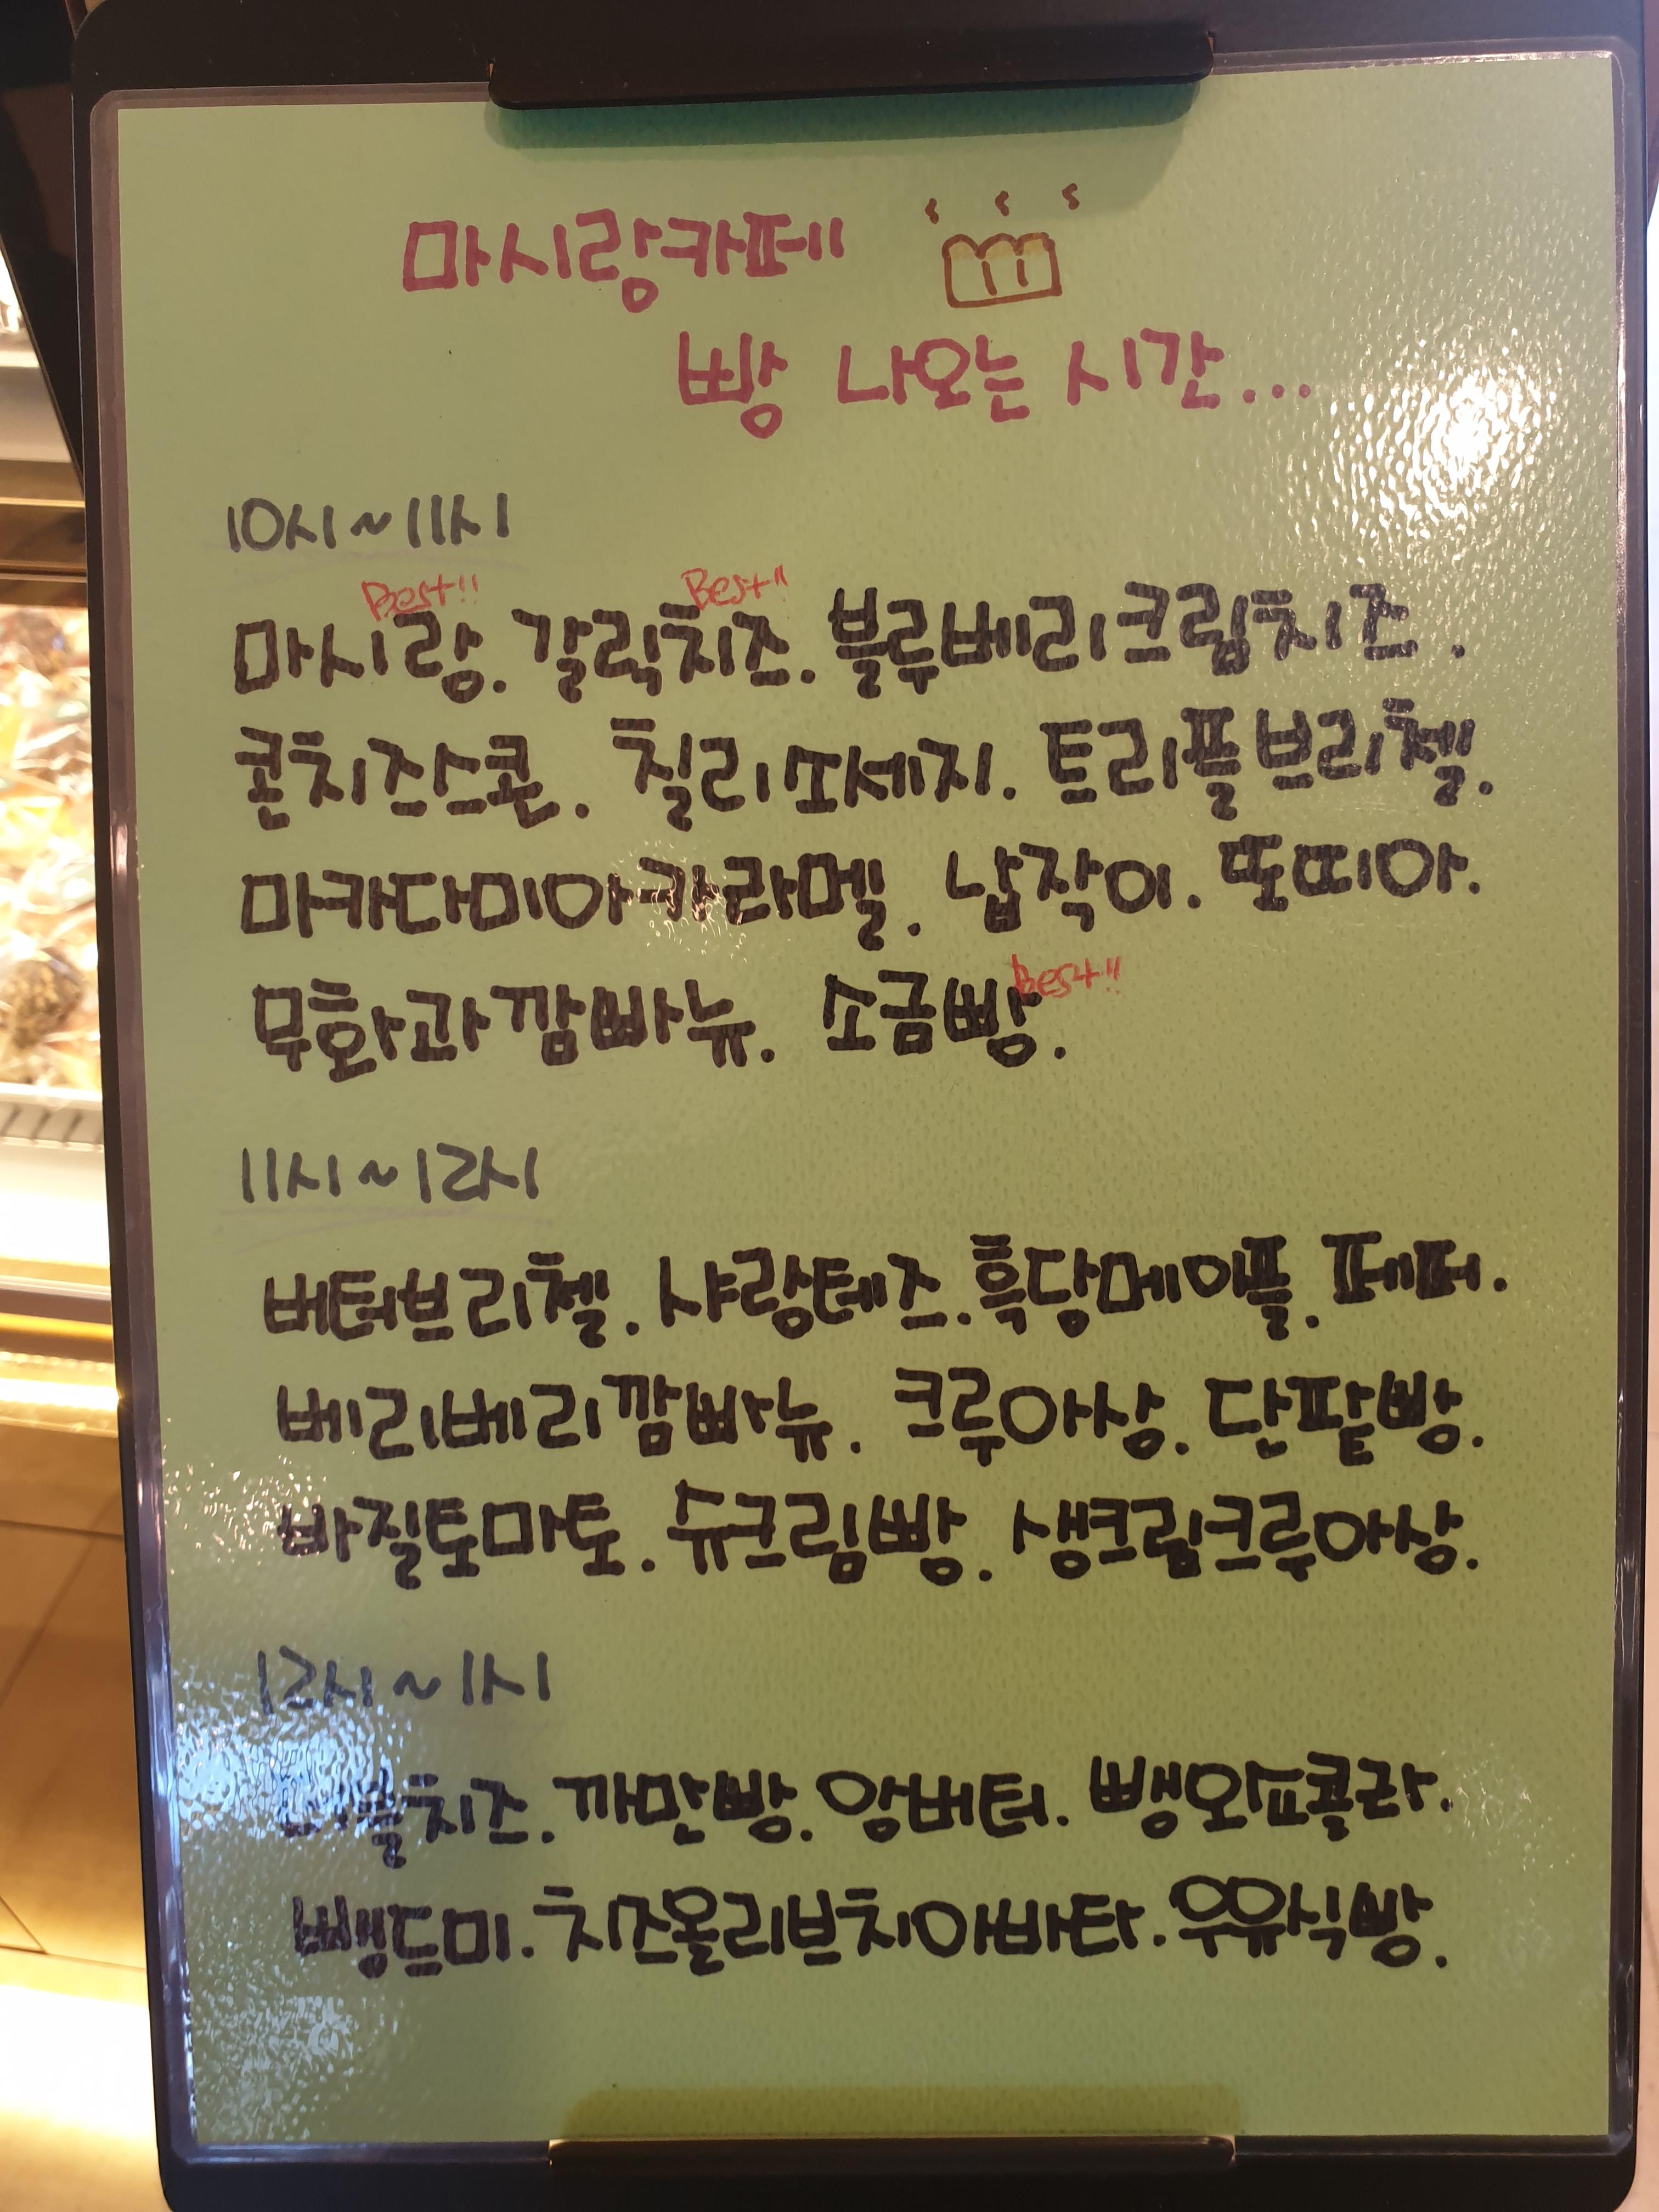 마시랑카페
빵 나오는 시간...
10시~11시
Best!! Best!!
마시랑. 갈릭치즈. 블루베리크림치즈.
콘치즈스콘. 칠리소세지. 트리플브리첼.
마카다미아카라멜. 납작이. 또띠아.
Best!!
무화과깜빠뉴. 소금빵.
11시~12시
버터브리첼. 샤랑테즈. 흑당메이플. 페퍼.
베리베리깜빠뉴. 크루아상. 단팥빵.
바질토마토. 슈크림빵. 생크림크루아상.
12시~1시
까만빵. 앙버터. 뺑오쇼콜라.
뺑드미. 치즈올리브치아바타. 우유식빵.